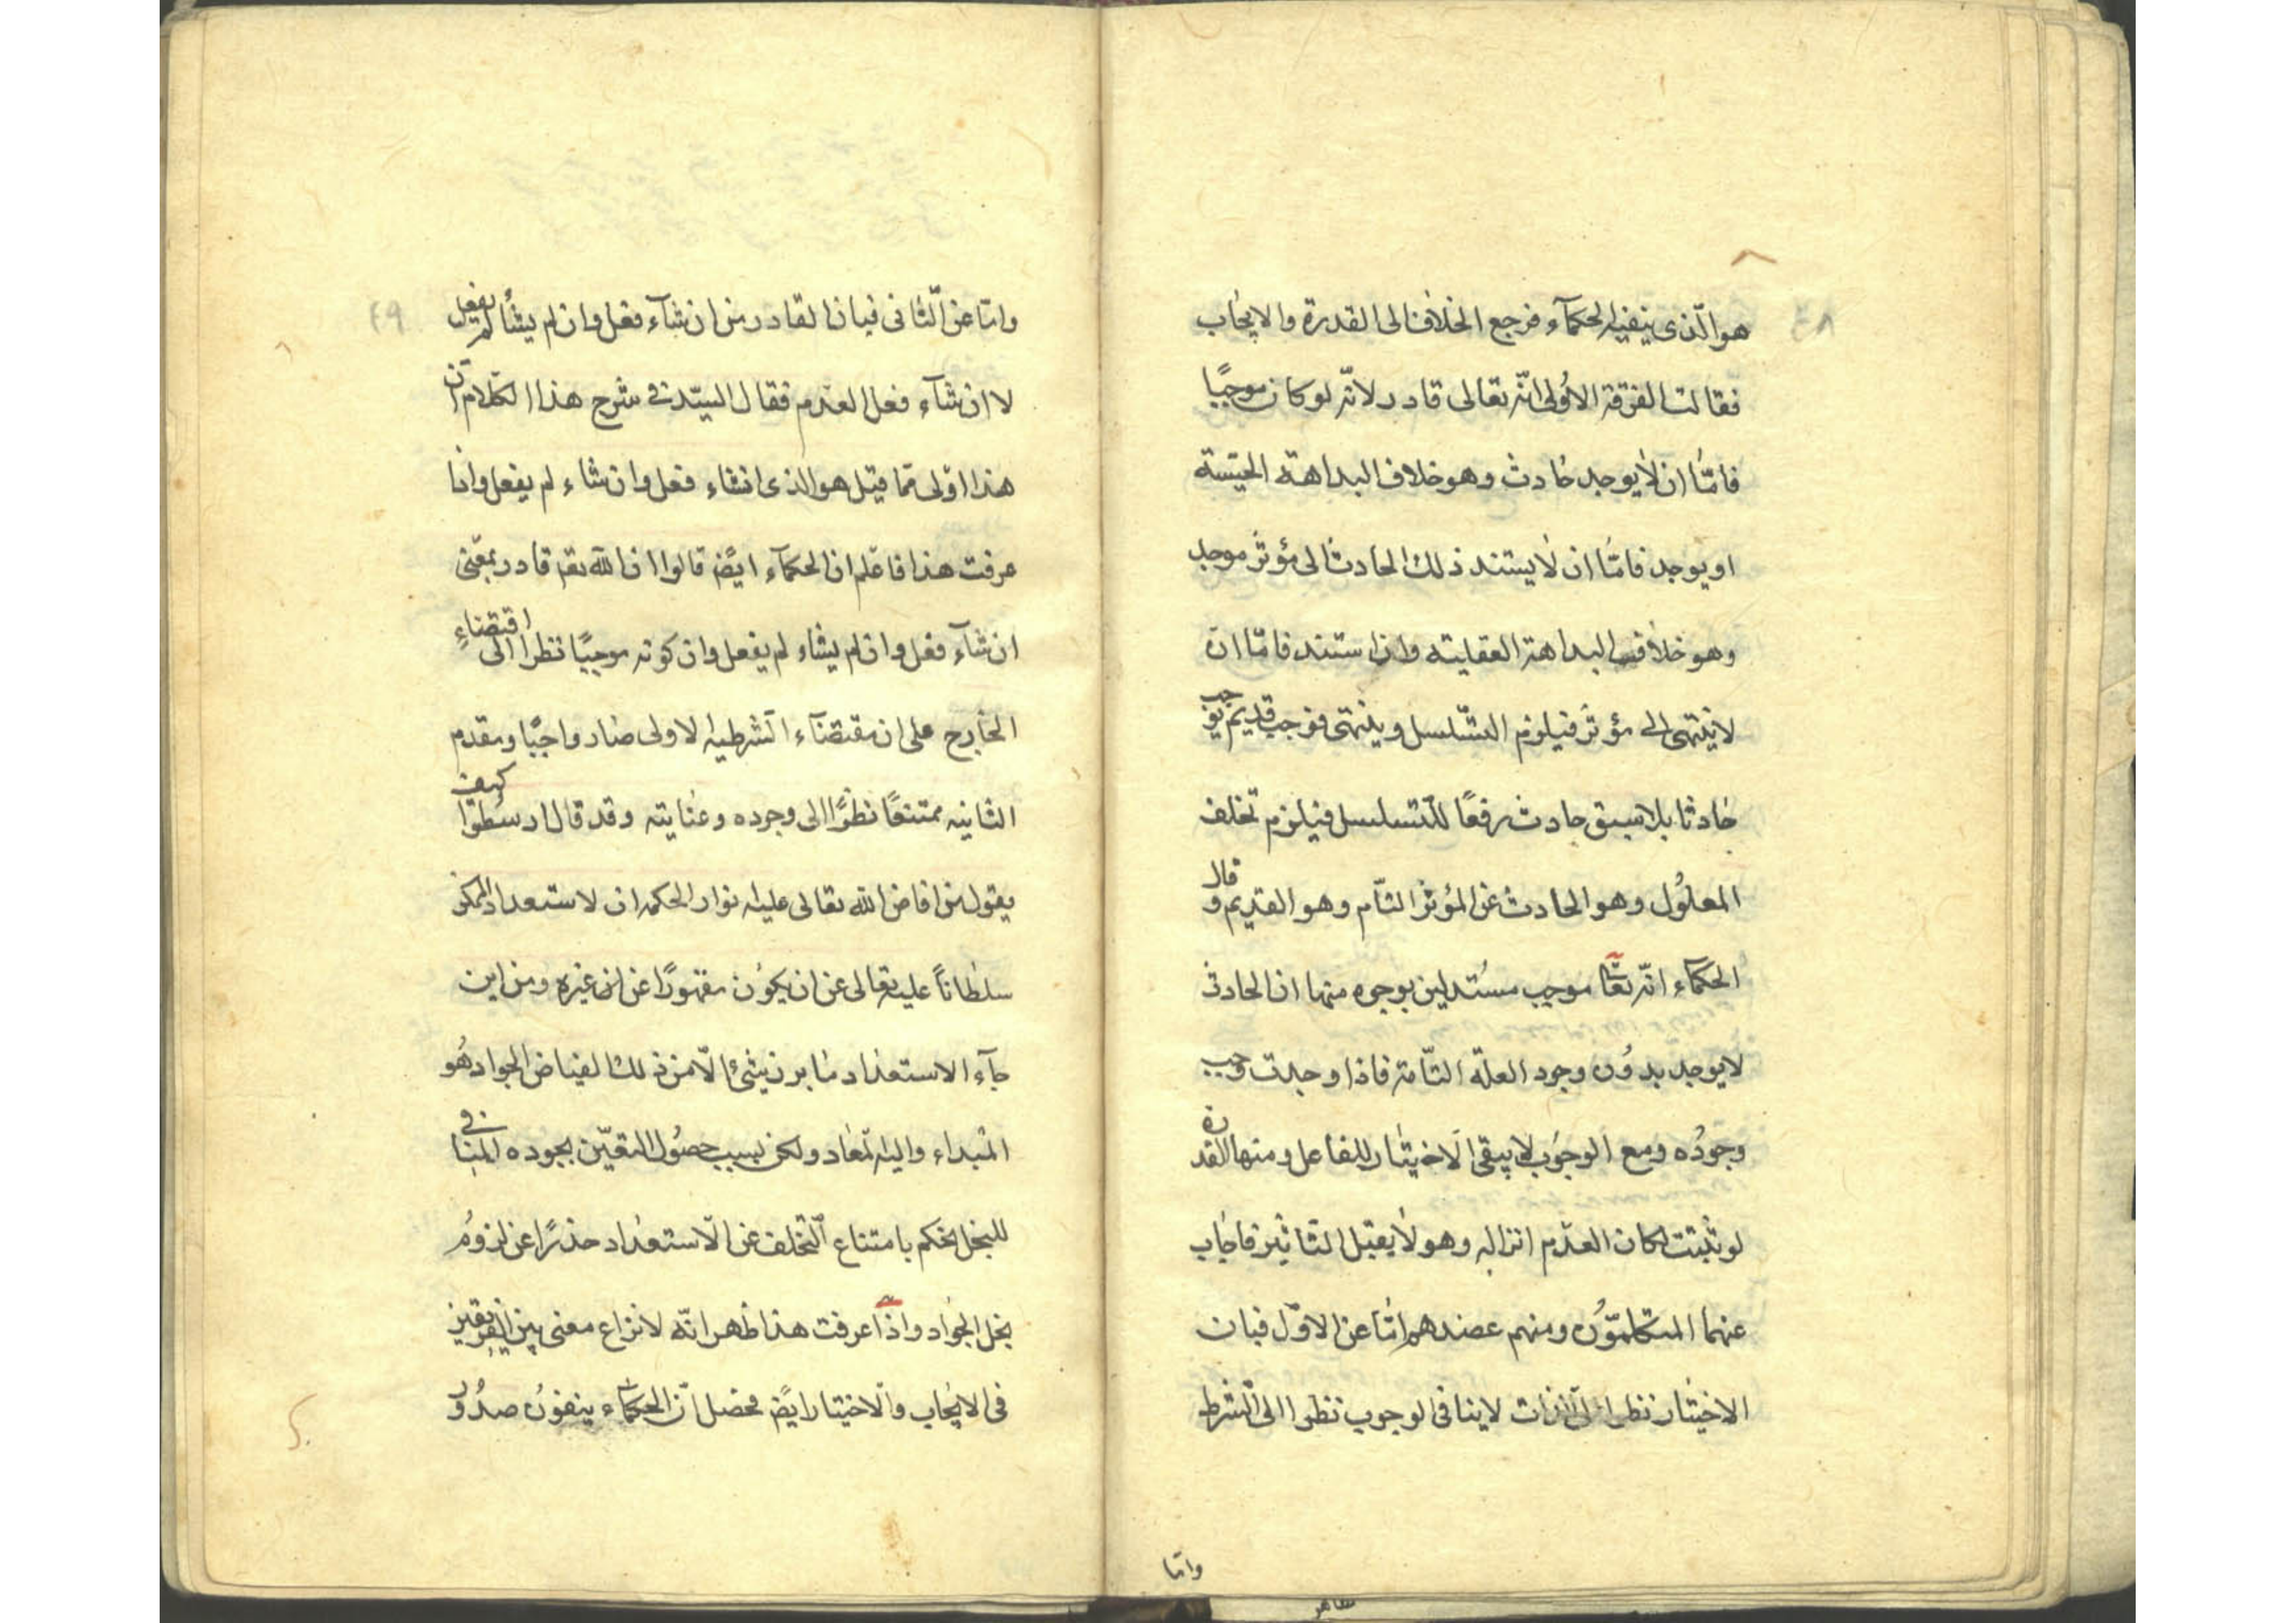 ٤٨
هو الّذى ينفيه الحكمآء فرجع الخلاف الى القدرة والايجاب
فقالت الفرقة الاُولى انّه تعالى قادر لانّه لو كان موجبًا
فامّا ان لا يوجد حادث وهو خلاف البداهة الحسّية
او يوجد فامّا ان لا يستند ذلك الحادث الى مؤثر موجد
وهو خلاف البداهة العقلية وان استند فامّا ان
لا ينتهى الى مؤثر فيلزم التسّلسل وينتهى فوجب قديم يوجب
حادثا بلا سبق حادث رفعًا للتّسلسل فيلزم تخلف
المعلُول وهو الحادث عن المؤثر التآم وهو القديم و قال
الحكمآء انّه تعا موجب مستدلين بوجوه منها ان الحادث
لا يوجد بدُون وجود العلّة التّامة فاذا وجدت وجب
وجودُه ومع الوجوب لا يبقى الاختيار للفاعل ومنها القدرة
لو ثبتت لكان العدم اثرا له وهو لا يقبل التاثير فاجاب
عنهما المتكلمّون ومنهم عضدهم امّا عن الاوّل فبان
الاختيار نظرا الى الذات لا ينافى الوجوب نظرا الى الشرط
وامّا
٤٩
وامّا عن الثّانى فبان القادر من ان شآء فعل وان لم يشأ لم يفعل
لا ان شآء فعل العدم فقال السيّد فى شرح هذا الكلام ان
هذا اولى ممّا قيل هو الذى ان شاء فعل وان شاء لم يفعل واذا
عرفت هذا فاعلم ان الحكمآء ايضً قالوا ان الله تع قادر بمعنى
ان شآء فعل وان لم يشاء لم يفعل وان كونه موجبًا نظرا الى اقتضاءِ
الخارج على ان مقتضآء الشرطيه الاولى صار واجبًا ومقدم
الثانيه ممتنعًا نظرًا الى وجوده وعنايته وقد قال ارسطو كيف
يقول من افاض الله تعالى عليه انوار الحكمه ان لاستعداد الممكن
سلطاناً عليه تعالى عن ان يكون مقهورًا عن اذن غيره ومن اين
جآء الاستعداد ما برز شئ الّا من ذلك الفياض الجواد هُو
المبداء واليه المعاد ولكن بسبب حصُول اليقين بجوده المنافى
للبخل يحكم بامتناع التّخلف عن الاستعداد حذرًا عن لزوم
بخل الجواد واذا عرفت هذا ظهر انّه لا نزاع معنى بين الفريقين
فى الايجاب والاختيار ايضً محصل ان الحكماء ينفون صدُور